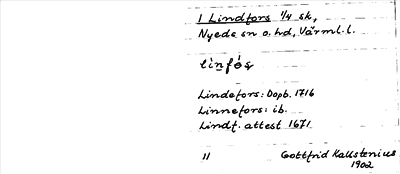 1 Lindfors 1/4 sk,
Nyeds sn o. hd, Värml. l.
linfós
Lindefors: Dopb. 1716
Linnefors: ib.
Lindf. attest 1671
11 Gottfrid Kallstenius
1902